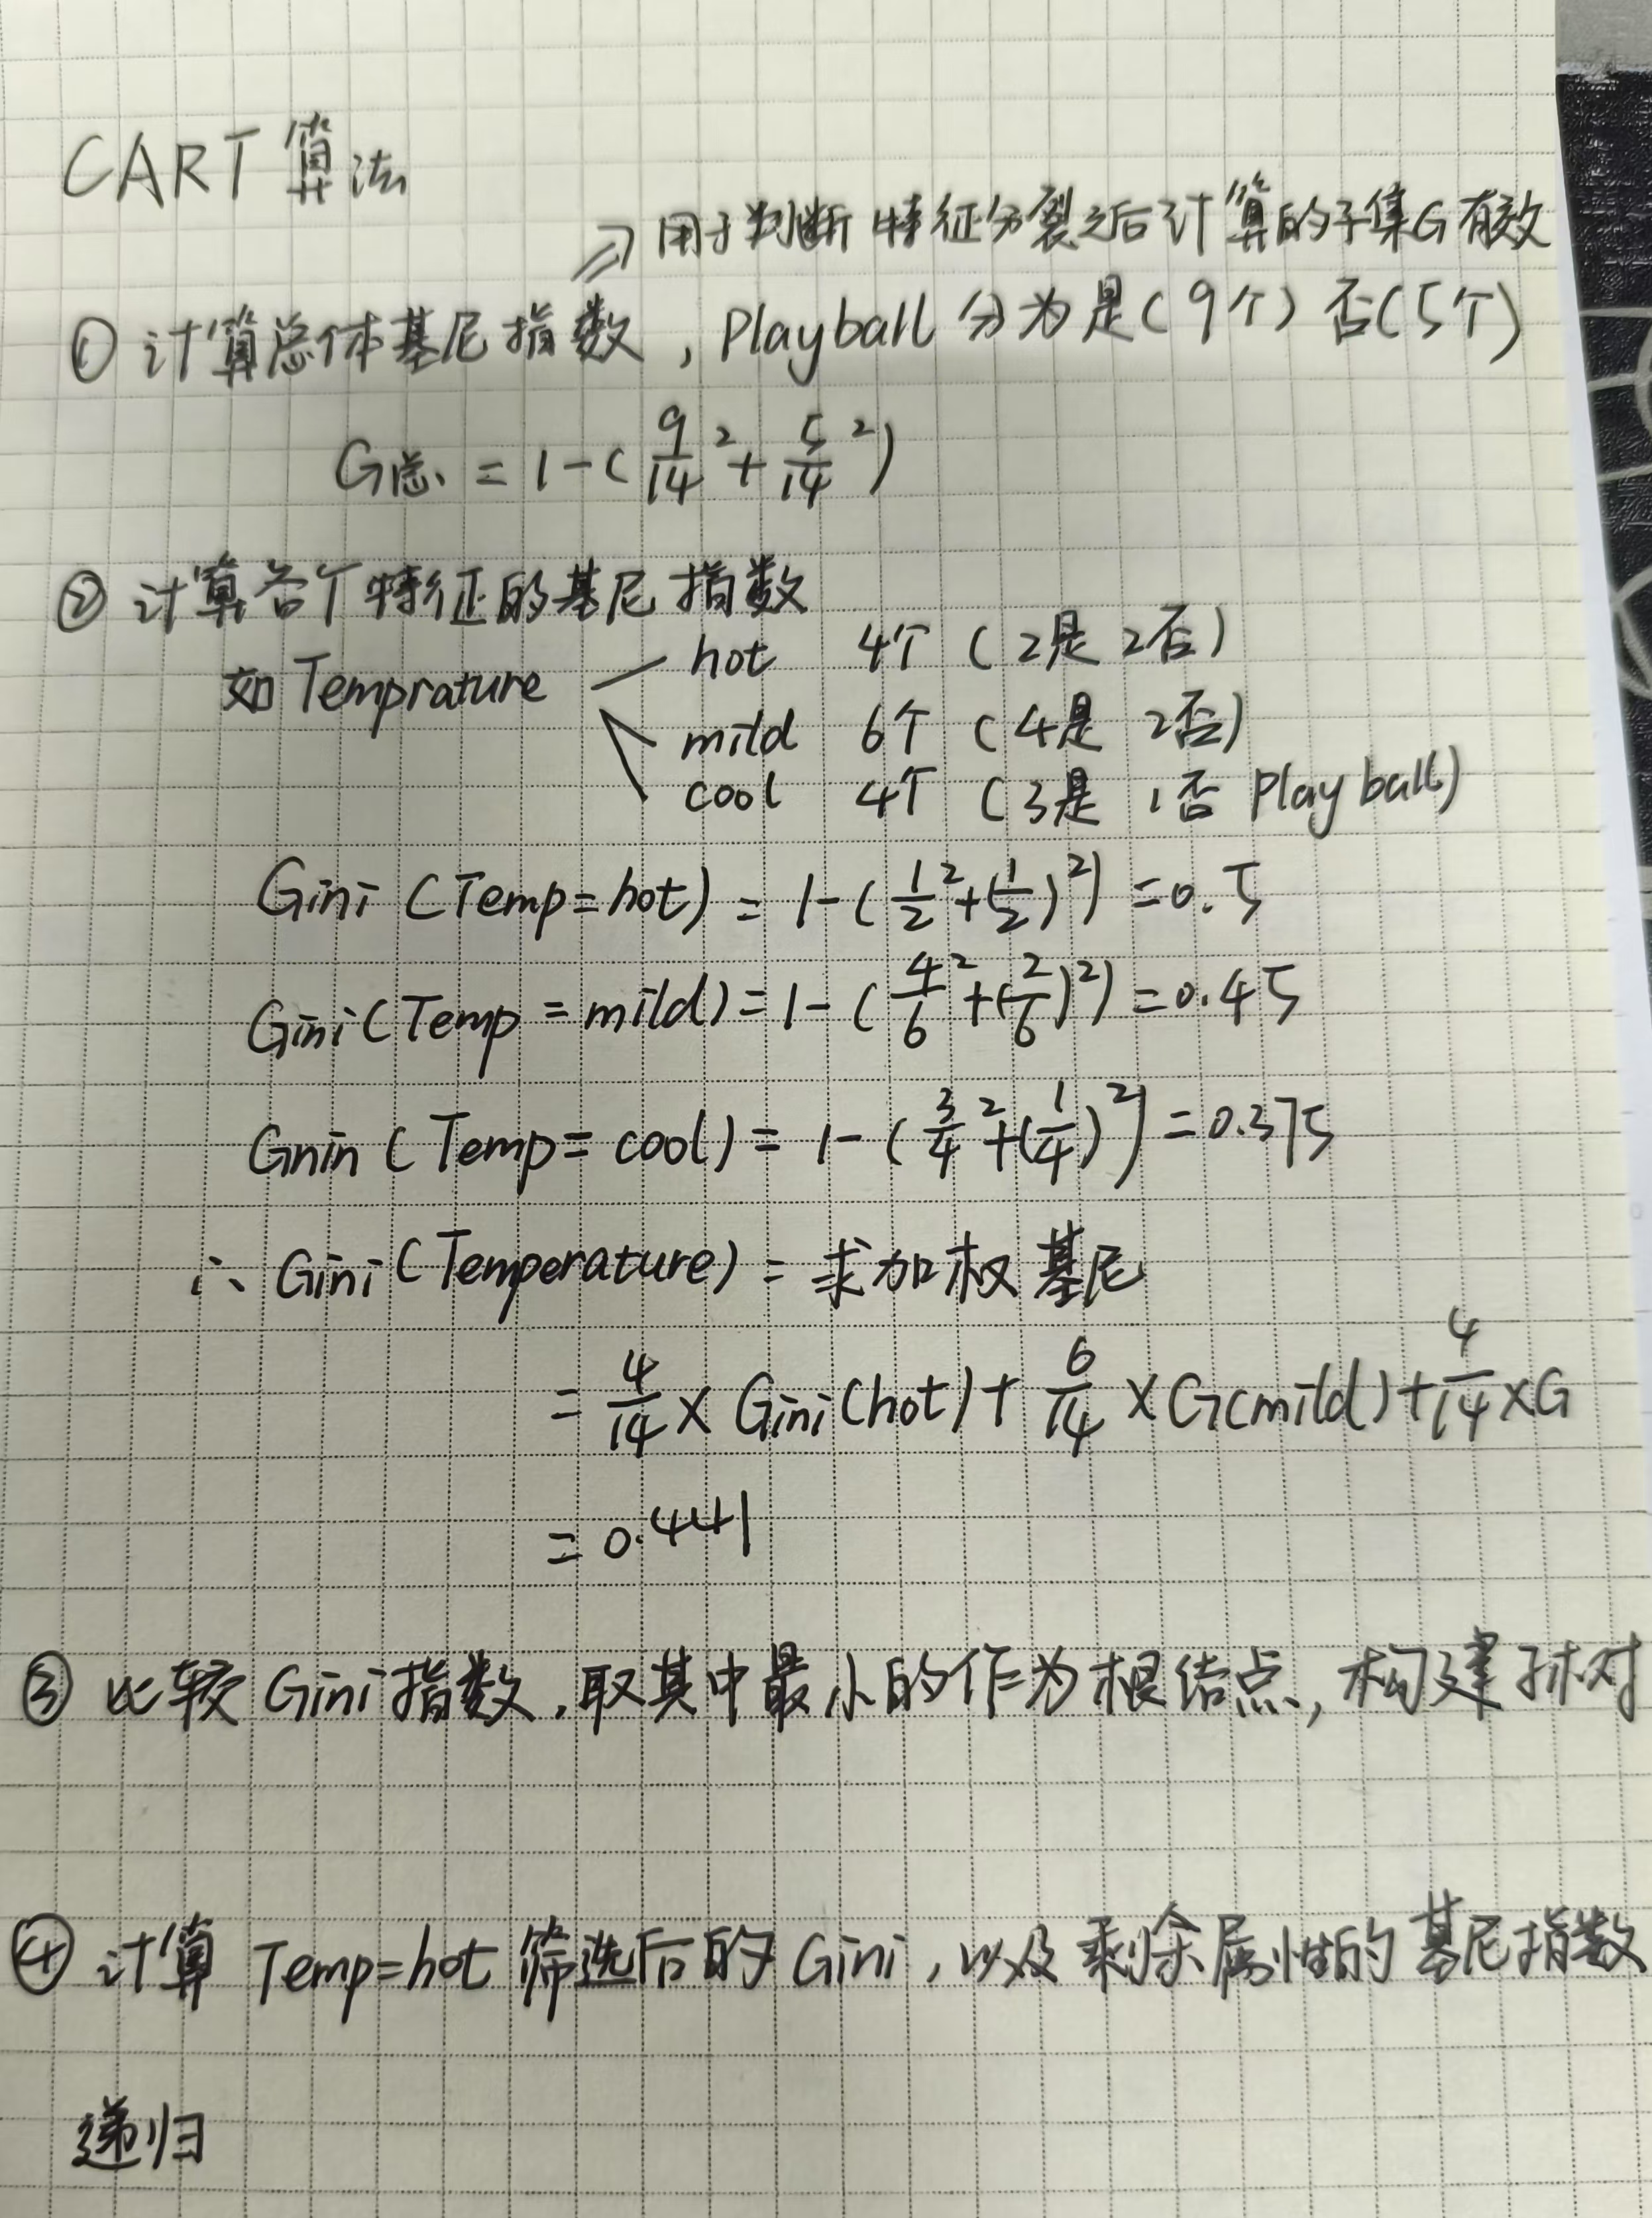 CART算法
⇒ 用于判断特征分裂之后计算的子集G有效
① 计算总体基尼指数, Playball 分为是(9个) 否(5个)
G总 = 1-(9/14² + 5/14²)
② 计算各个特征的基尼指数
如 Temprature
hot 4个 (2是 2否)
mild 6个 (4是 2否)
cool 4个 (3是 1否 Play ball)
Gini (Temp=hot) = 1-(1/2²+(1/2)²) =0.5
Gini(Temp=mild)=1-(4/6²+(2/6)²) =0.45
Gnin (Temp=cool) = 1-(3/4²+(1/4)²) =0.375
∴ Gini(Temperature) = 求加权基尼
= 4/14 × Gini(hot)+ 6/14 ×G(mild)+4/14×G
= 0.441
③ 比较 Gini指数,取其中最小的作为根结点,构建
④ 计算 Temp=hot 筛选后的 Gini, 以及剩余属性的基尼指数
递归